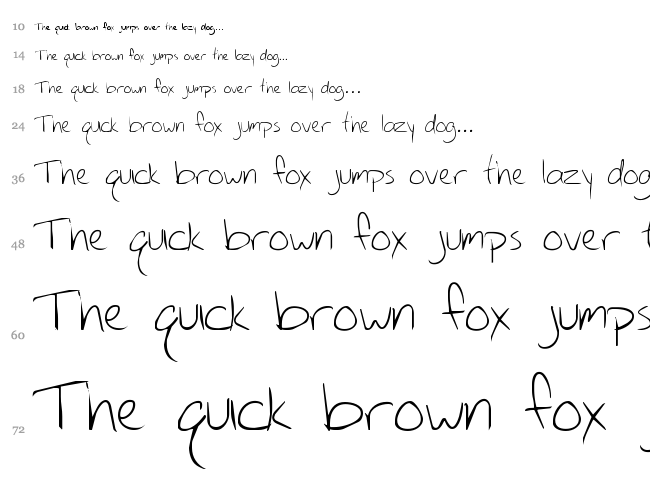 10 The quick brown fox jumps over the lazy dog...
14 The quick brown fox jumps over the lazy dog...
18 The quick brown fox jumps over the lazy dog...
24 The quick brown fox jumps over the lazy dog...
36 The quick brown fox jumps over the lazy dog
48 The quick brown fox jumps over t
60 The quick brown fox jumps
72 The quick brown fox j